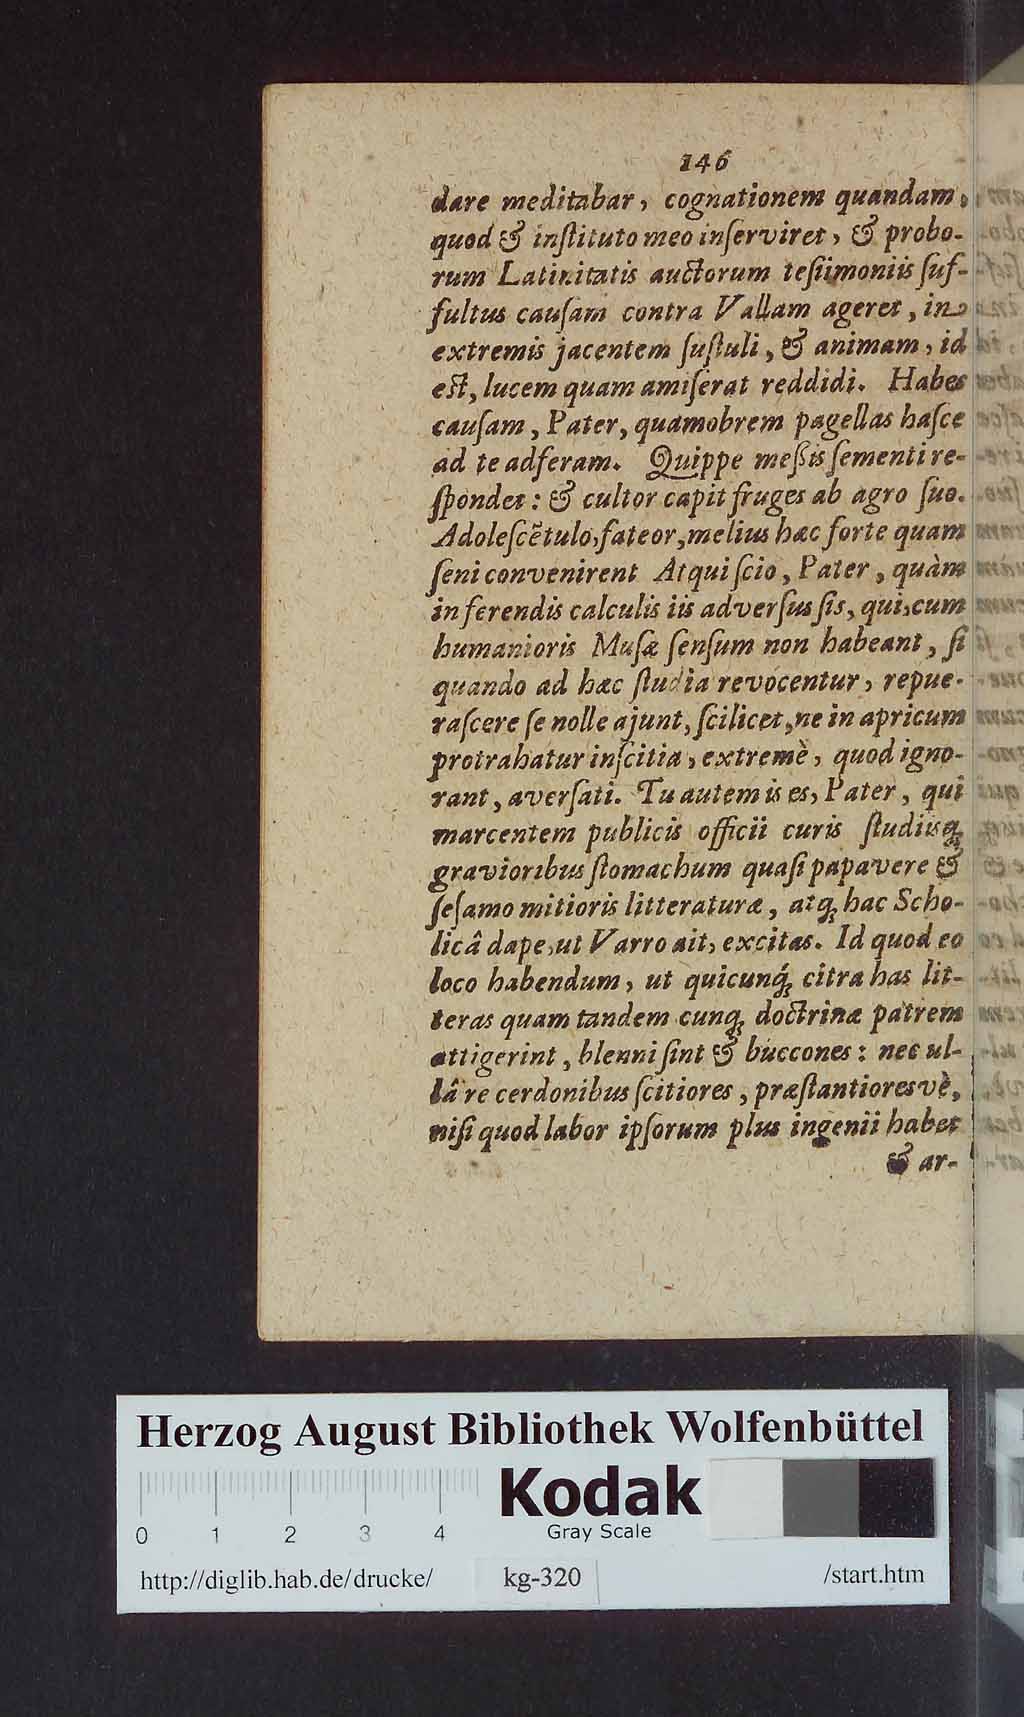 146
dare meditabar, cognationem quandam,
quod & inſtituto meo inſerviret, & probo-
rum Latinitatis auctorum teſtimoniis ſuf-
fultus cauſam contra Vallam ageret, in
extremis jacentem ſuſtuli, & animam, id
eſt, lucem quam amiſerat reddidi. Habes
cauſam, Pater, quamobrem pagellas haſce
ad te adferam. Quippe meßis ſementi re-
ſpondet: & cultor capit fruges ab agro ſuo.
Adoleſcẽtulo, fateor, melius hæc forte quam
ſeni convenirent Atqui ſcio, Pater, quàm
in ferendis calculis iis adverſus ſis, qui, cum
humanioris Muſæ ſenſum non habeant, ſi
quando ad hæc ſtudia revocentur, repue-
raſcere ſe nolle ajunt, ſcilicet, ne in apricum
protrahatur inſcitia, extremè, quod igno-
rant, averſati. Tu autem is es, Pater, qui
marcentem publicis officii curis ſtudiisq;
gravioribus ſtomachum quaſi papavere &
ſeſamo mitioris litteraturæ, atq; hac Scho-
licâ dape, ut Varro ait, excitas. Id quod eo
loco habendum, ut quicunq́; citra has lit-
teras quam tandem cunq; doctrinæ patrem
attigerint, blenni ſint & buccones: nec ul-
lâ re cerdonibus ſcitiores, præſtantioresvè,
niſi quod labor ipſorum plus ingenii habet
& ar-
Herzog August Bibliothek Wolfenbüttel
0 1 2 3 4
Kodak
Gray Scale
http://diglib.hab.de/drucke/ kg-320 /start.htm